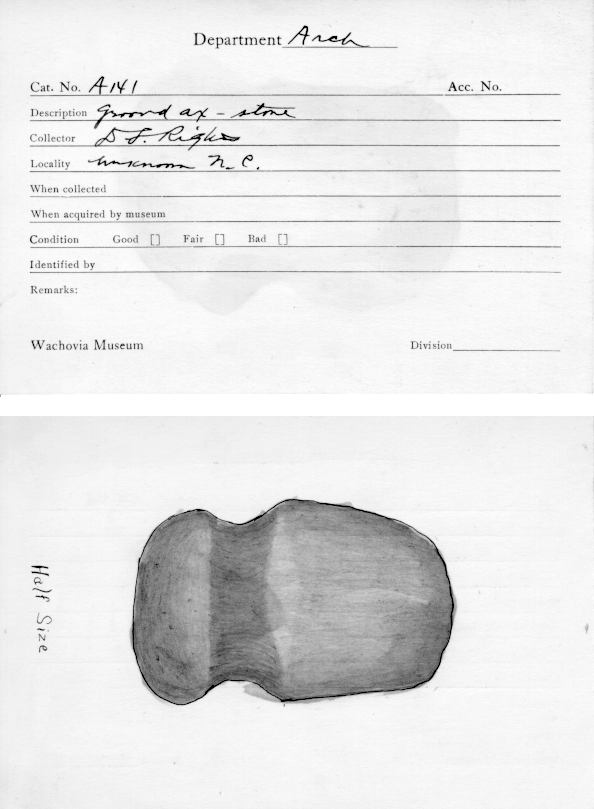 Department Arch
Cat. No. A141 Acc. No.
Description Groovd ax - stone
Collector D. S.
Locality unknown N. C.
When collected
When acquired by museum
Condition Good [] Fair [] Bad []
Identified by
Remarks:
Wachovia Museum Division
Half Size